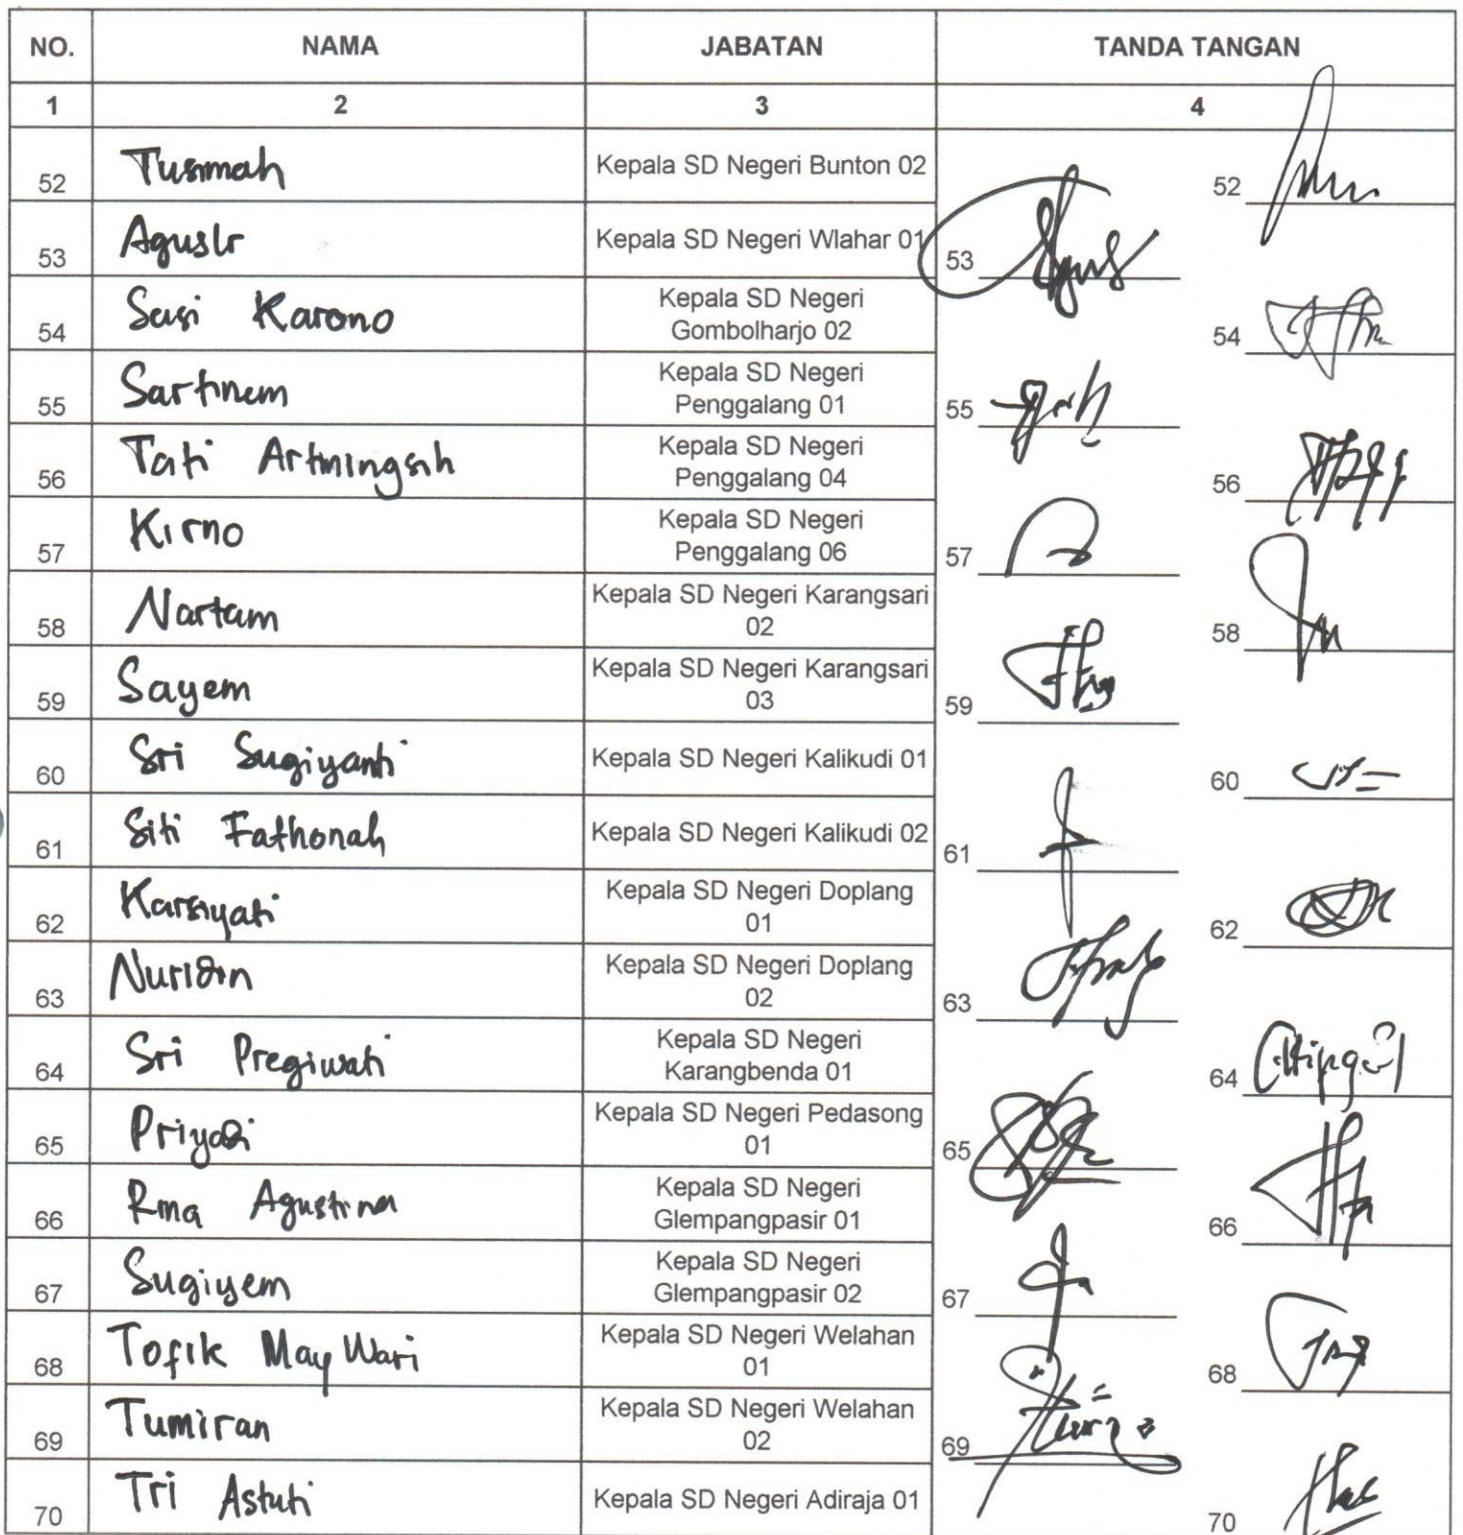 NO. NAMA JABATAN TANDA TANGAN
1 2 3 4
52 Tusimah Kepala SD Negeri Bunton 02 52
53 Kepala SD Negeri Wlahar 01 53
54 Susi Karono Kepala SD Negeri
Gombolharjo 02 54
55 Sartinem Kepala SD Negeri
Penggalang 01 55
56 Tati Artiningsih Kepala SD Negeri
Penggalang 04 56
57 Kirno Kepala SD Negeri
Penggalang 06 57
58 Nartam Kepala SD Negeri Karangsari
02 58
59 Sayem Kepala SD Negeri Karangsari
03 59
60 Sri Sugiyanti Kepala SD Negeri Kalikudi 01 60
61 Siti Fathonah Kepala SD Negeri Kalikudi 02 61
62 Karsiyati Kepala SD Negeri Doplang
01 62
63 Nuridin Kepala SD Negeri Doplang
02 63
64 Sri Pregiwati Kepala SD Negeri
Karangbenda 01 64
65 Priyadi Kepala SD Negeri Pedasong
01 65
66 Rina Agustina Kepala SD Negeri
Glempangpasir 01 66
67 Sugiyem Kepala SD Negeri
Glempangpasir 02 67
68 Tofik May Wari Kepala SD Negeri Welahan
01 68
69 Tumiran Kepala SD Negeri Welahan
02 69
70 Tri Astuti Kepala SD Negeri Adiraja 01 70